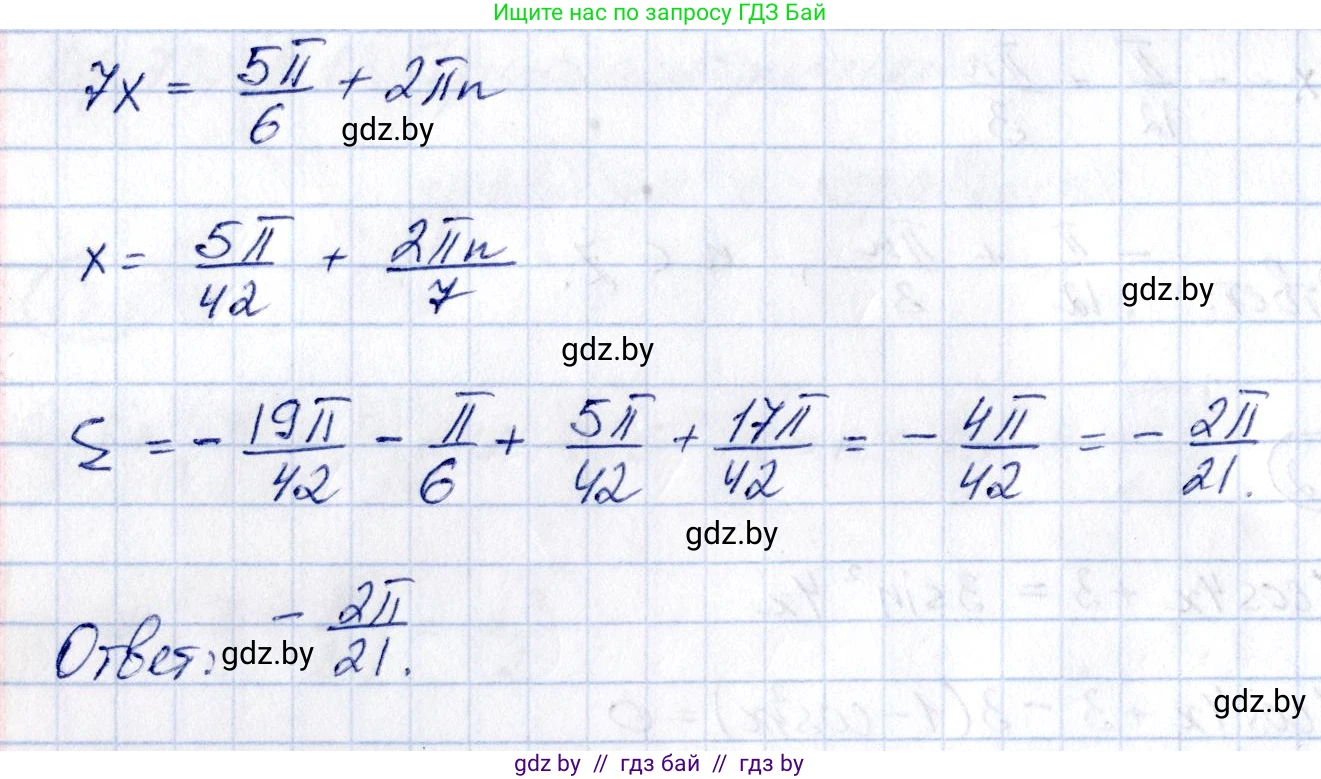 Ищите нас по запросу ГДЗ Бай
7x = 5π/6 + 2πn
gdz.by
x = 5π/42 + 2πn/7
gdz.by
gdz.by
Σ = - 19π/42 - π/6 + 5π/42 + 17π/42 = - 4π/42 = - 2π/21.
gdz.by
Ответ: - 2π/21.
gdz.by
gdz.by
gdz.by // гдз бай // гдз by